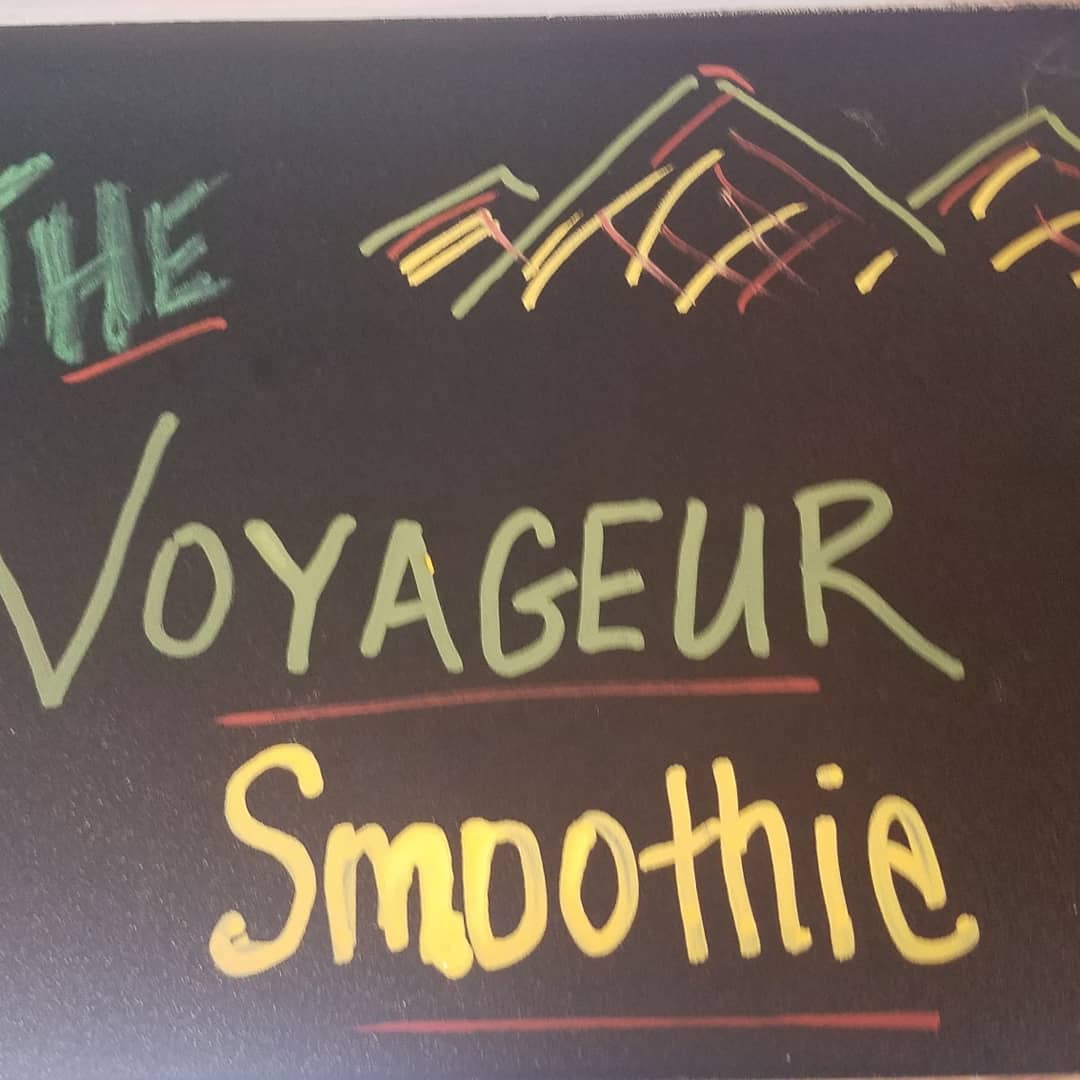 THE
VOYAGEUR
Smoothie